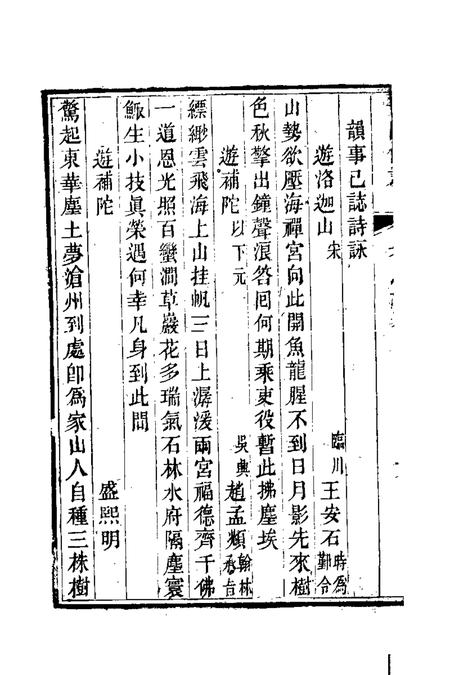 韻事已誌詩詠
遊洛迦山 宋 臨川 王安石 時爲鄞令
山勢欲壓海禪宮向此開魚龍腥不到日月影先來樹
色秋擎出鐘聲浪答囘何期乘吏役暫此拂塵埃
遊補陀 以下元 吳興 趙孟頫 翰林承旨
縹緲雲飛海上山挂帆三日上潺湲兩宮福德齊千佛
一道恩光照百蠻澗草巖花多瑞氣石林水府隔塵寰
鯫生小技眞榮遇何幸凡身到此間
遊補陀 盛熙明
驚起東華塵土夢滄州到處卽爲家山人自種三株樹